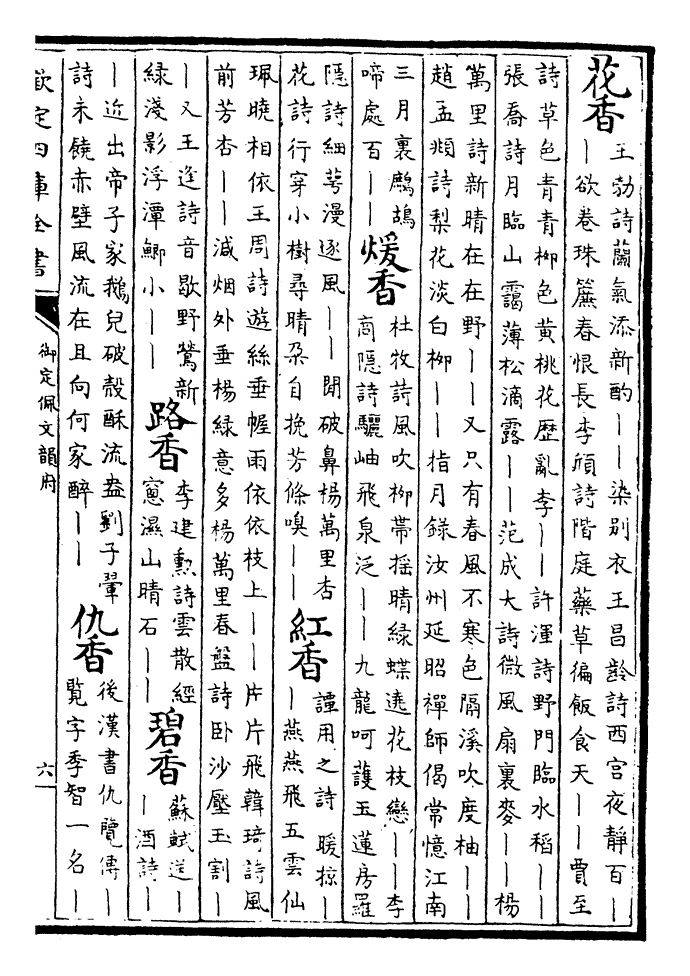 花香 王勃詩蘭氣添新酌||染別衣王昌齡詩西宫夜靜百|
|欲卷珠簾春恨長李頎詩階庭藥草徧飯食天||賈至
詩草色青青栁色黃桃花歴亂李||許渾詩野門臨水稻||
張喬詩月臨山靄薄松滴露||范成大詩微風扇裏麥||楊
萬里詩新晴在在野||又只有春風不寒色隔溪吹度柚||
趙孟頫詩梨花淡白栁||指月錄汝州延昭禪師偈常憶江南
三月裏鷓鴣
啼處百||
煖香 杜牧詩風吹栁帶揺晴綠蝶遶花枝戀||李
商隠詩驪岫飛泉泛||九龍呵䕶玉蓮房羅
隠詩細萼漫逐風||閒破鼻楊萬里杏
花詩行穿小樹尋晴朶自挽芳條嗅||
紅香 譚用之詩暖掠|
|燕燕飛五雲仙
珮曉相依王周詩遊絲垂幄雨依依枝上||片片飛韓琦詩風
前芳杏||減烟外垂楊緑意多楊萬里春盤詩卧沙壓玉割|
|又王逢詩音歇野鶯新
緑淺影浮潭鯽小||
路香 李建勲詩雲散經
窻濕山晴石||
碧香 蘇軾送|
|酒詩|
|近出帝子家鵝兒破殻酥流盎劉子翬
詩未饒赤壁風流在且向何家醉||
仇香 後漢書仇覽傳|
覽字季智一名|
欽定四庫全書
御定佩文韻府
六